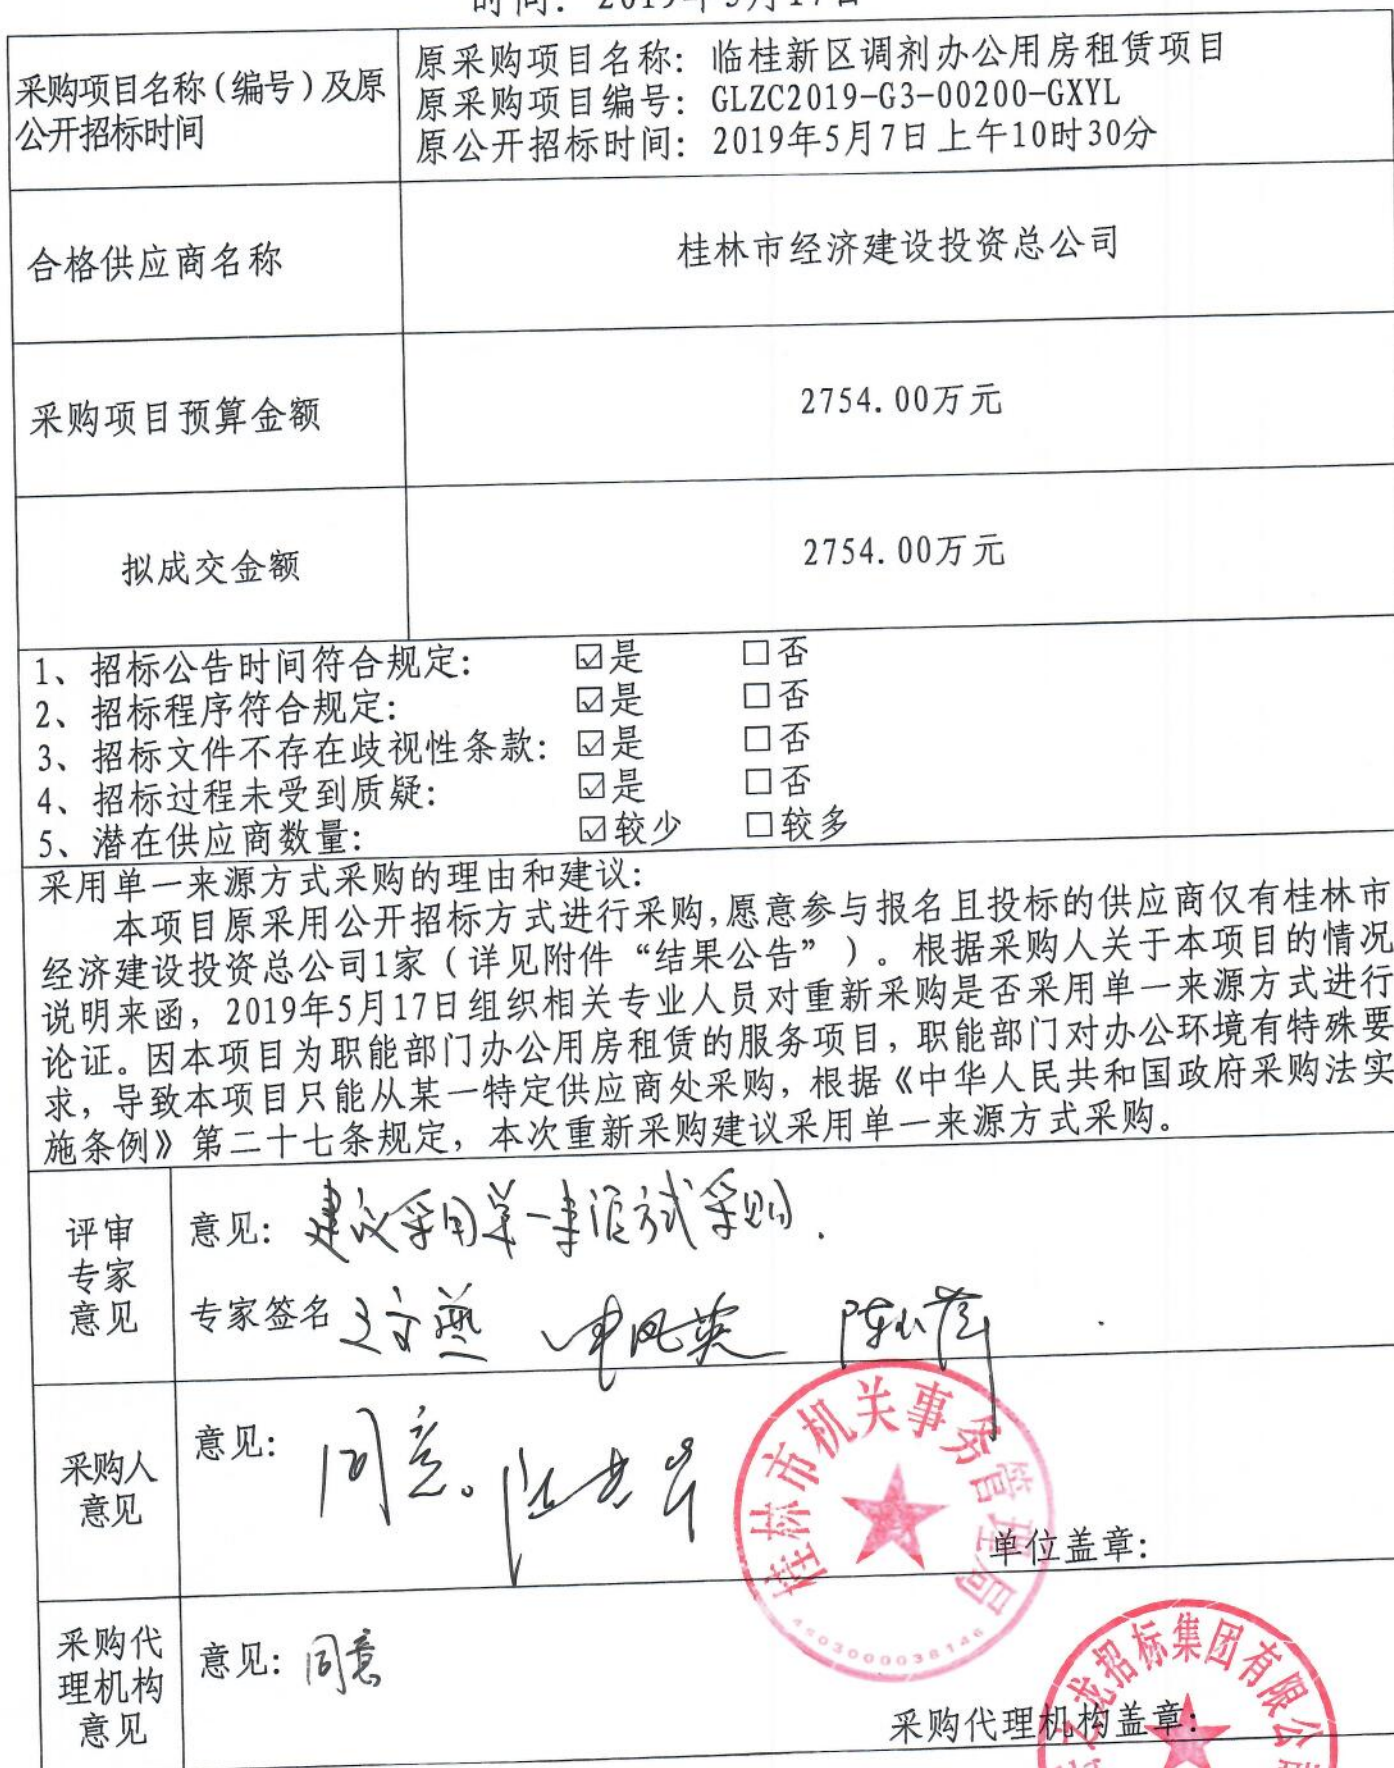 时间: 2019年5月17日
采购项目名称(编号)及原
公开招标时间
原采购项目名称: 临桂新区调剂办公用房租赁项目
原采购项目编号: GLZC2019-G3-00200-GXYL
原公开招标时间: 2019年5月7日上午10时30分
合格供应商名称
桂林市经济建设投资总公司
采购项目预算金额
2754.00万元
拟成交金额
2754.00万元
1、招标公告时间符合规定: ☑是 □否
2、招标程序符合规定: ☑是 □否
3、招标文件不存在歧视性条款: ☑是 □否
4、招标过程未受到质疑: ☑是 □否
5、潜在供应商数量: ☑较少 □较多
采用单一来源方式采购的理由和建议:
本项目原采用公开招标方式进行采购,愿意参与报名且投标的供应商仅有桂林市
经济建设投资总公司1家（详见附件“结果公告”）。根据采购人关于本项目的情况
说明来函, 2019年5月17日组织相关专业人员对重新采购是否采用单一来源方式进行
论证。因本项目为职能部门办公用房租赁的服务项目, 职能部门对办公环境有特殊要
求, 导致本项目只能从某一特定供应商处采购, 根据《中华人民共和国政府采购法实
施条例》第二十七条规定, 本次重新采购建议采用单一来源方式采购。
评审
专家
意见
意见: 建议采用单一来源方式采购.
专家签名
采购人
意见
意见: 同意。
桂林市机关事务管理局
4503000038146
单位盖章:
采购代
理机构
意见
意见: 同意
采购代理机构盖章:
之龙招标集团有限公